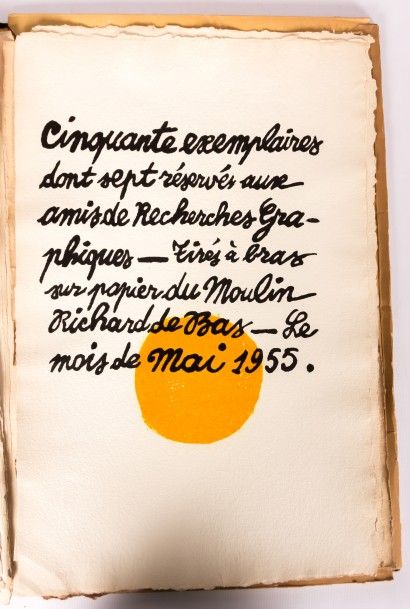 Cinquante exemplaires
dont sept réservés aux
amis de Recherches Gra-
phiques — Tirés à bras
sur papier du Moulin
Richard de Bas — Le
mois de Mai 1955.